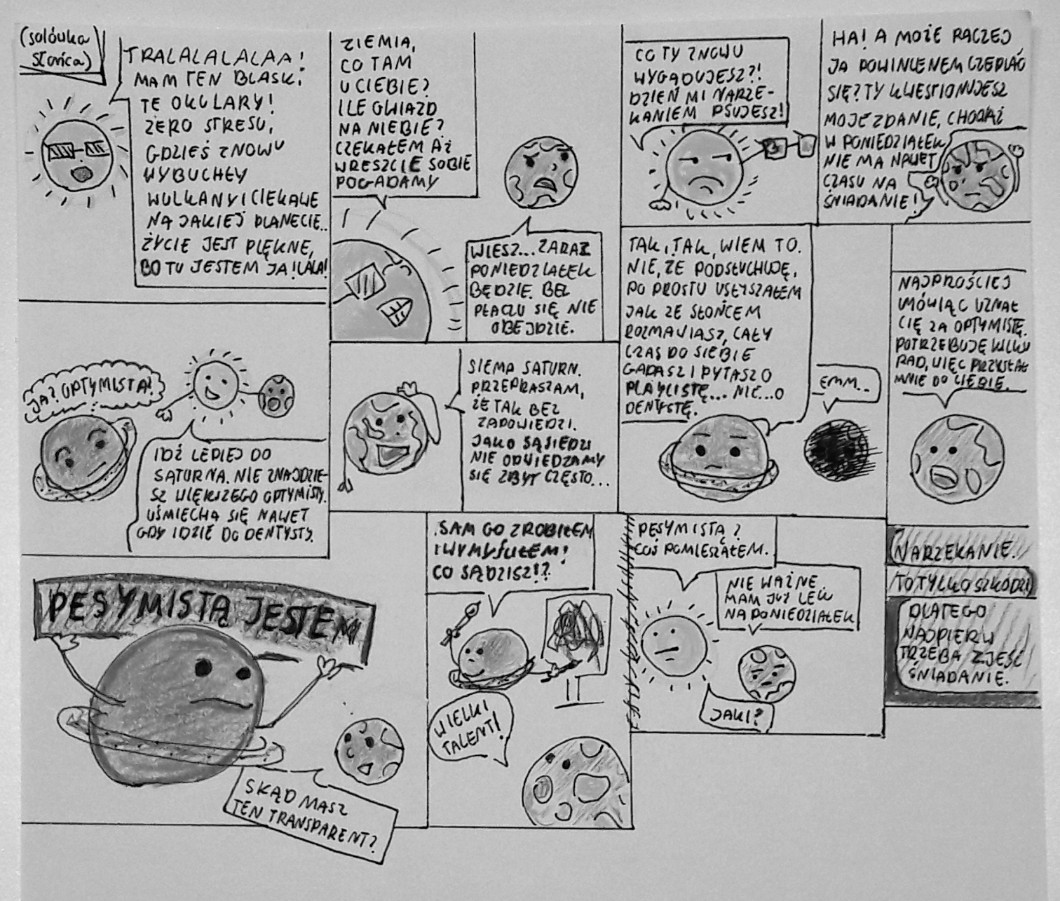 (solówka
Słońca)
TRALALALALAA!
MAM TEN BLASK!
TE OKULARY!
ZERO STRESU,
GDZIEŚ ZNOWU
WYBUCHŁY
WULKANY I CIEKAWE
NA JAKIEJ PLANECIE..
ŻYCIE JEST PIĘKNE,
BO TU JESTEM JA! LALA!
ZIEMIA,
CO TAM
U CIEBIE?
ILE GWIAZD
NA NIEBIE?
CZEKAŁEM AŻ
WRESZCIE SOBIE
POGADAMY
WIESZ... ZARAZ
PONIEDZIAŁEK
BĘDZIE. BEZ
PŁACZU SIĘ NIE
OBEJDZIE.
CO TY ZNOWU
WYGADUJESZ?!
DZIEŃ MI NARZE-
KANIEM PSUJESZ!
HA! A MOŻE RACZEJ
JA POWINIENEM CZEPIAĆ
SIĘ? TY KWESTIONUJESZ
MOJE ZDANIE, CHOCIAŻ
W PONIEDZIAŁEK
NIE MA NAWET
CZASU NA
ŚNIADANIE!
JA? OPTYMISTĄ?
IDŹ LEPIEJ DO
SATURNA. NIE ZNAJDZIE-
SZ WIĘKSZEGO OPTYMISTY.
UŚMIECHA SIĘ NAWET
GDY IDZIE DO DENTYSTY.
SIEMA SATURN.
PRZEPRASZAM,
ŻE TAK BEZ
ZAPOWIEDZI.
JAKO SĄSIEDZI
NIE ODWIEDZAMY
SIĘ ZBYT CZĘSTO...
TAK, TAK, WIEM TO.
NIE, ŻE PODSŁUCHUJĘ,
PO PROSTU USŁYSZAŁEM
JAK ZE SŁOŃCEM
ROZMAWIASZ, CAŁY
CZAS DO SIEBIE
GADASZ I PYTASZ O
PLAYLISTĘ... NIE... O
DENTYSTĘ.
EMM..
NAJPROŚCIEJ
MÓWIĄC UZNAŁ
CIĘ ZA OPTYMISTĘ.
POTRZEBUJĘ KILKU
RAD, WIĘC PRZYSŁAŁ
MNIE DO CIEBIE.
PESYMISTĄ JESTEM
SKĄD MASZ
TEN TRANSPARENT?
SAM GO ZROBIŁEM
I WYMYŚLIŁEM!
CO SĄDZISZ!?
WIELKI
TALENT!
PESYMISTĄ?
COŚ POMIESZAŁEM.
NIE WAŻNE.
MAM JUŻ LEK
NA PONIEDZIAŁEK
JAKI?
NARZEKANIE..
TO TYLKO SZKODZI
DLATEGO
NAJPIERW
TRZEBA ZJEŚĆ
ŚNIADANIE.